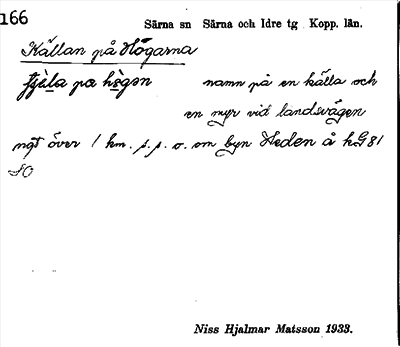 166
Särna sn Särna och Idre tg Kopp. län.
Källan på Högarna
namn på en källa och
en myr vid landsvägen
ngt över 1 km. s. s. o. om byn Heden å kG81
SO
Niss Hjalmar Matsson 1933.